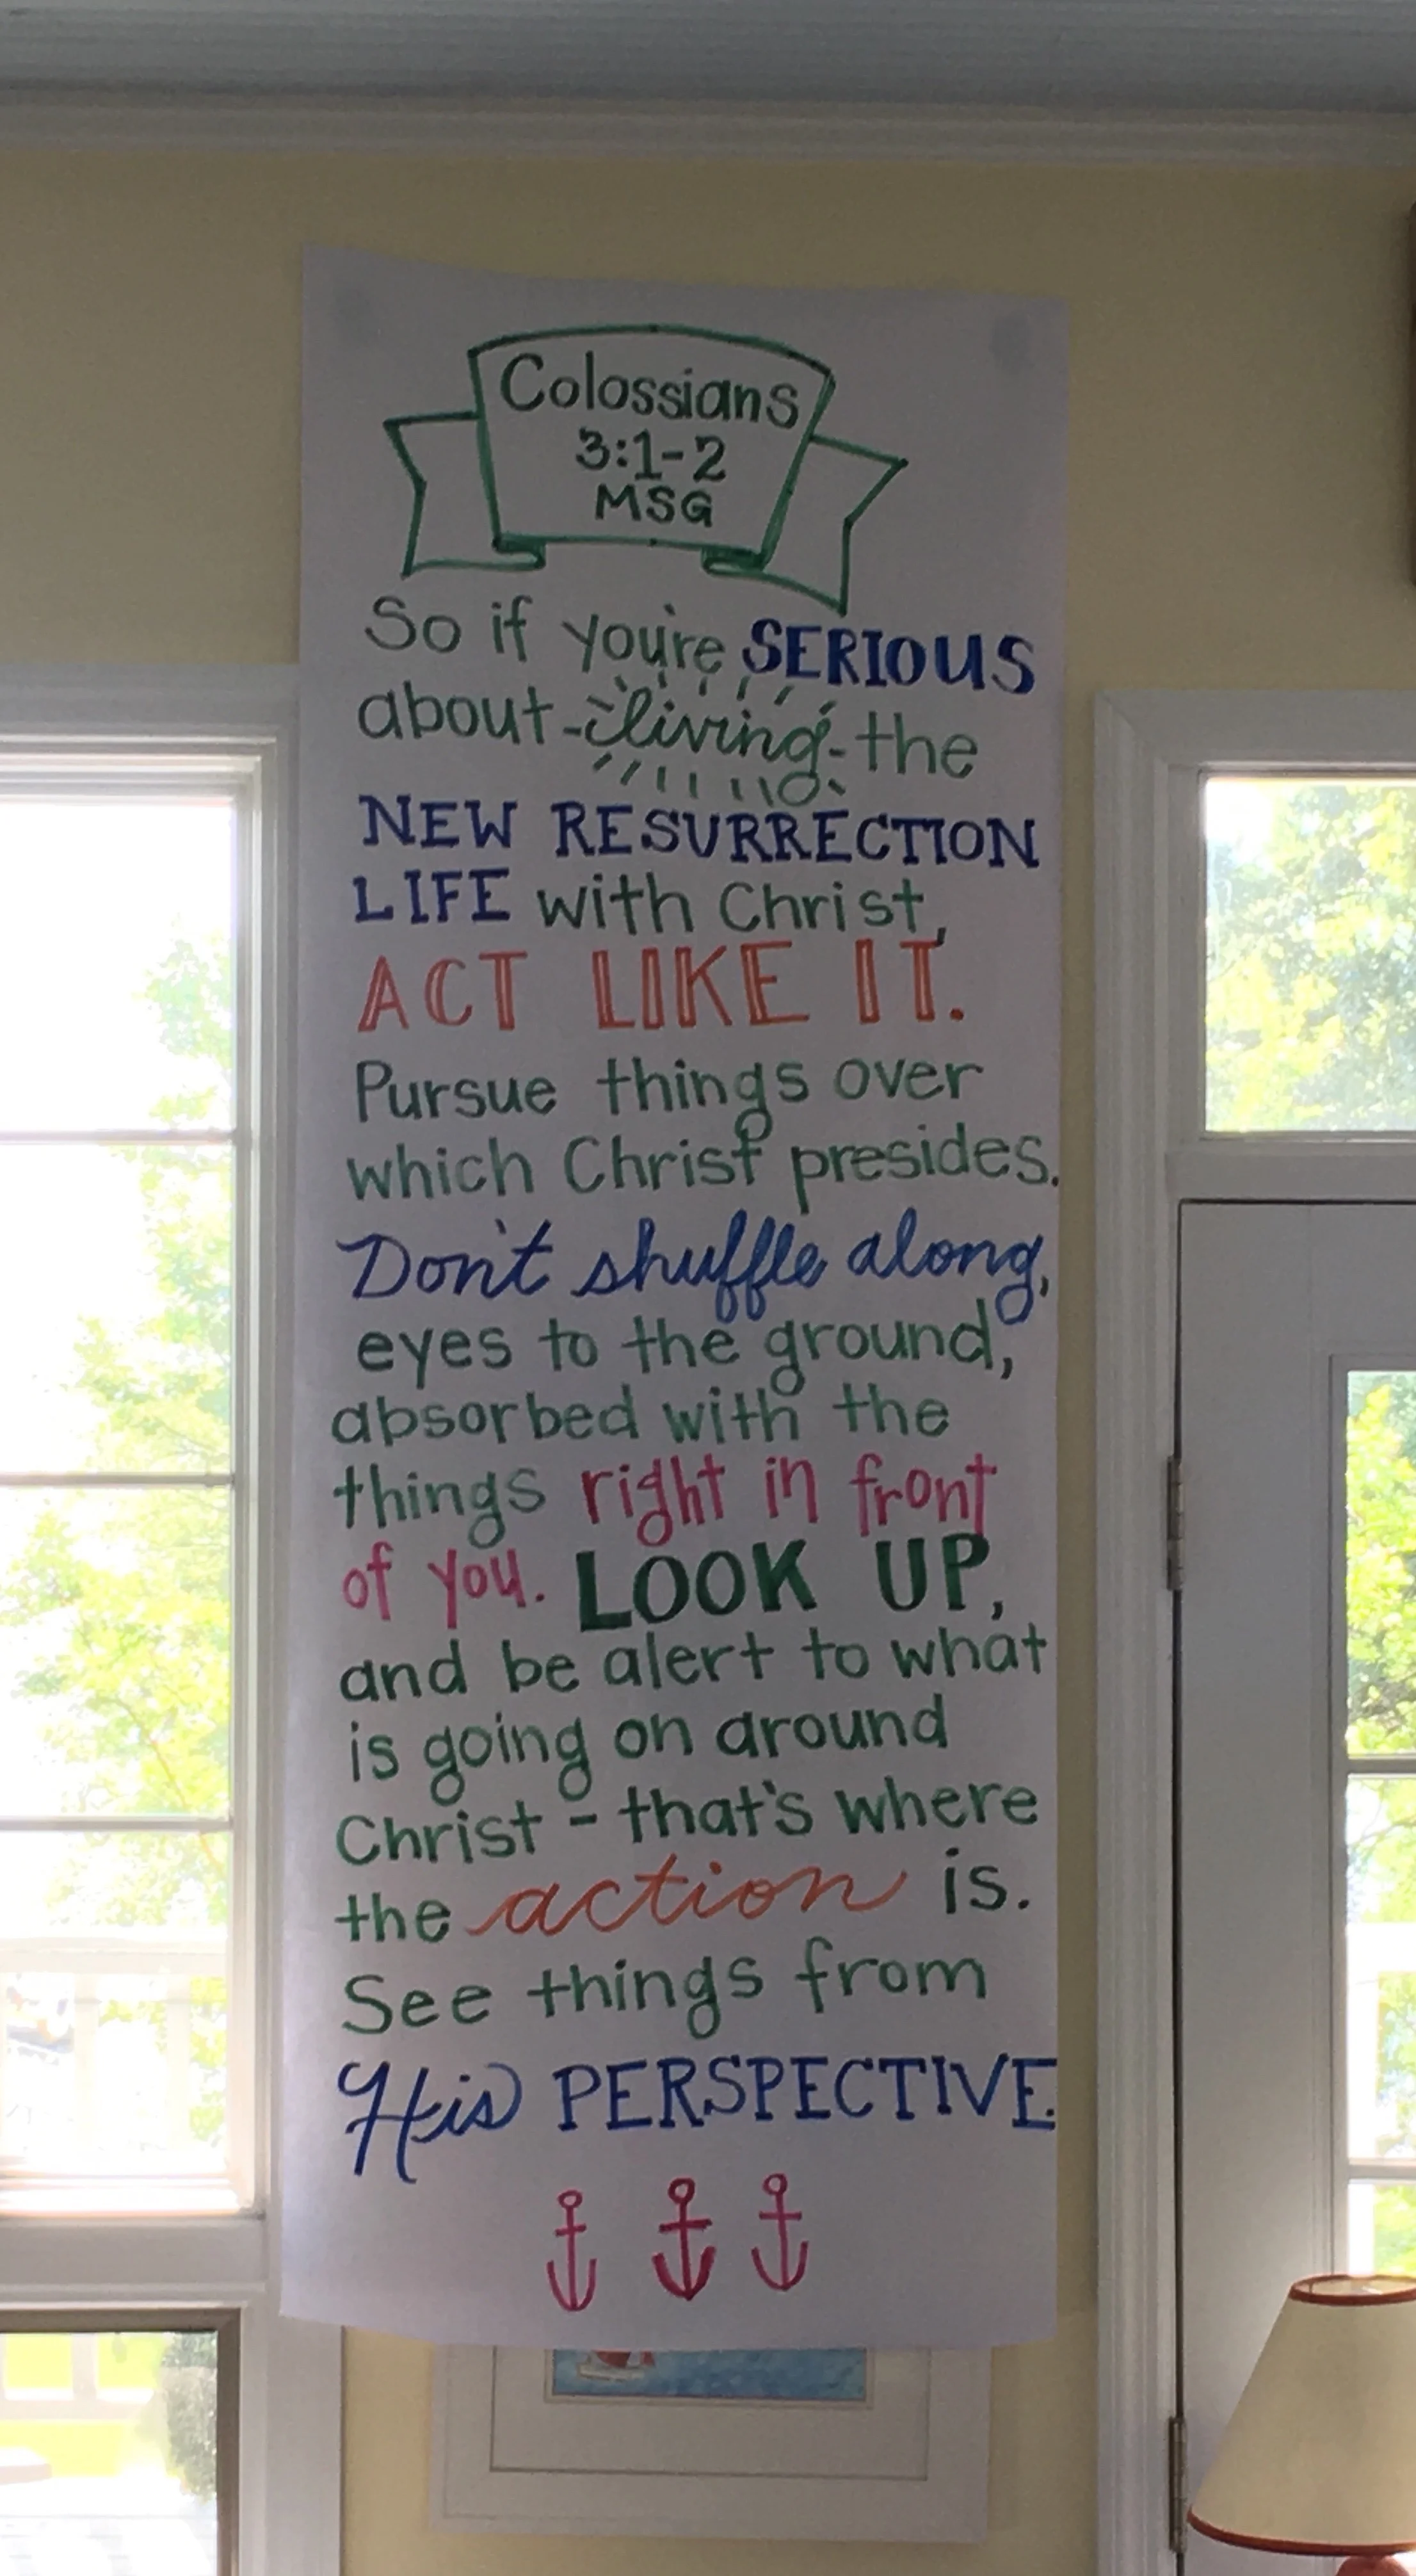 Colossians
3:1-2
MSG
So if you're SERIOUS
about living the
NEW RESURRECTION
LIFE with Christ,
ACT LIKE IT.
Pursue things over
which Christ presides.
Don't shuffle along,
eyes to the ground,
absorbed with the
things right in front
of you. LOOK UP,
and be alert to what
is going on around
Christ - that's where
the action is.
See things from
His PERSPECTIVE.